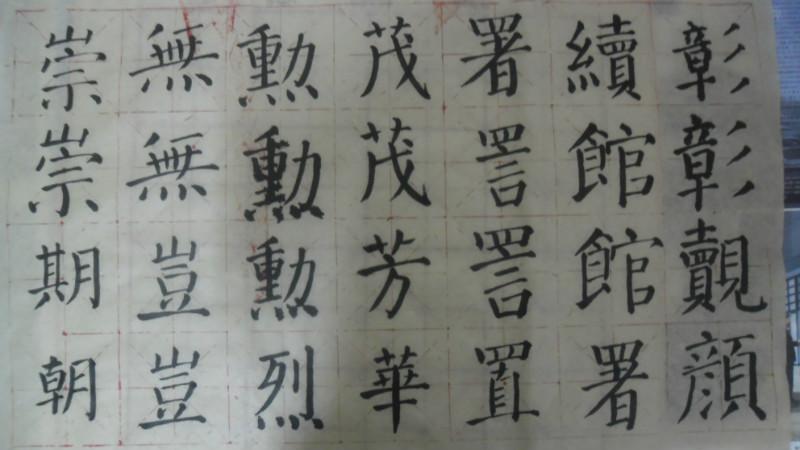 彰彰覿顔
續館館署
署詈詈置
茂茂芳華
勳勳勳烈
無無豈豈
崇崇期朝